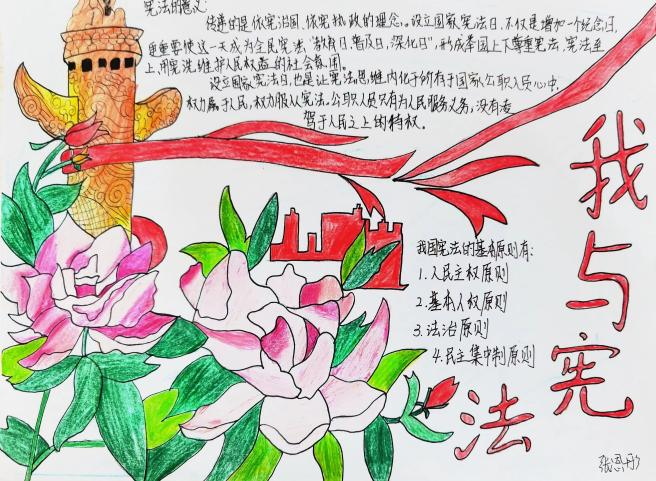 宪法的意义:
传递的是依宪治国、依宪执政的理念。设立国家宪法日,不仅是增加一个纪念日,
更重要使这一天成为全民宪法“教育日、普及日,深化日”,形成举国上下尊重宪法,宪法至
上,用宪法维护人民权益的社会氛围。
设立国家宪法日,也是让宪法思维内化于所有于国家公职人员心中,
权力属于人民,权力服从宪法。公职人员只有为人民服务义务,没有凌
驾于人民之上的特权。
我国宪法的基本原则有:
1.人民主权原则
2.基本人权原则
3.法治原则
4.民主集中制原则
我与宪法
张恩彤